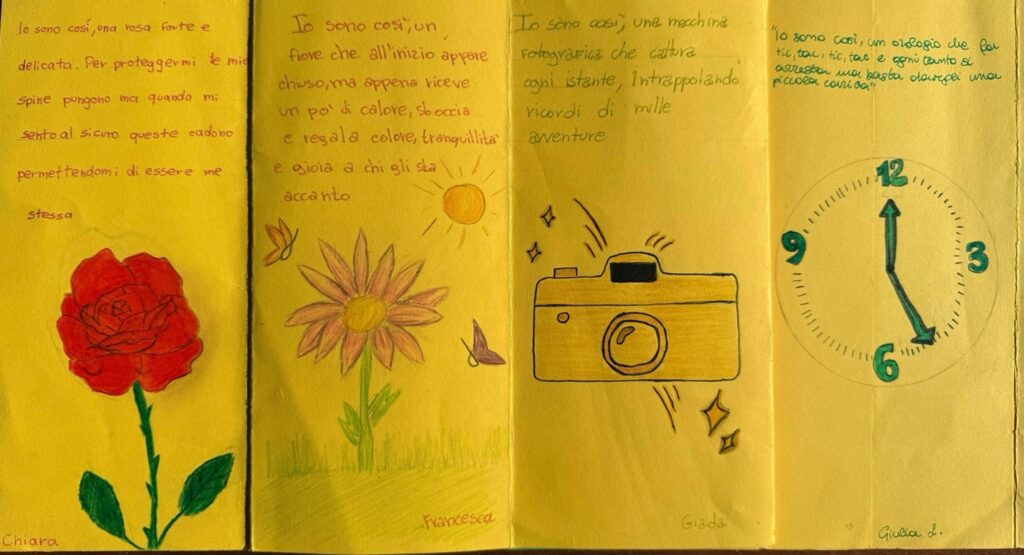 Io sono così, una rosa forte e
delicata. Per proteggermi le mie
spine pungono ma quando mi
sento al sicuro queste cadono
permettendomi di essere me
stessa
Chiara
Io sono così, un
fiore che all'inizio appare
chiuso, ma appena riceve
un po' di calore, sboccia
e regala colore, tranquillità
e gioia a chi gli sta
accanto
Francesca
Io sono così, una macchina
fotografica che cattura
ogni istante, intrappolando
ricordi di mille
avventure
Giada
"Io sono così, un orologio che fa
tic, tac, tic, tac e ogni tanto si
arresta ma basta dargli una
piccola carica"
12
9
3
6
Giulia L.